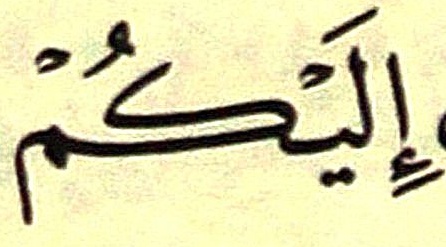 إِلَيْكُمْ